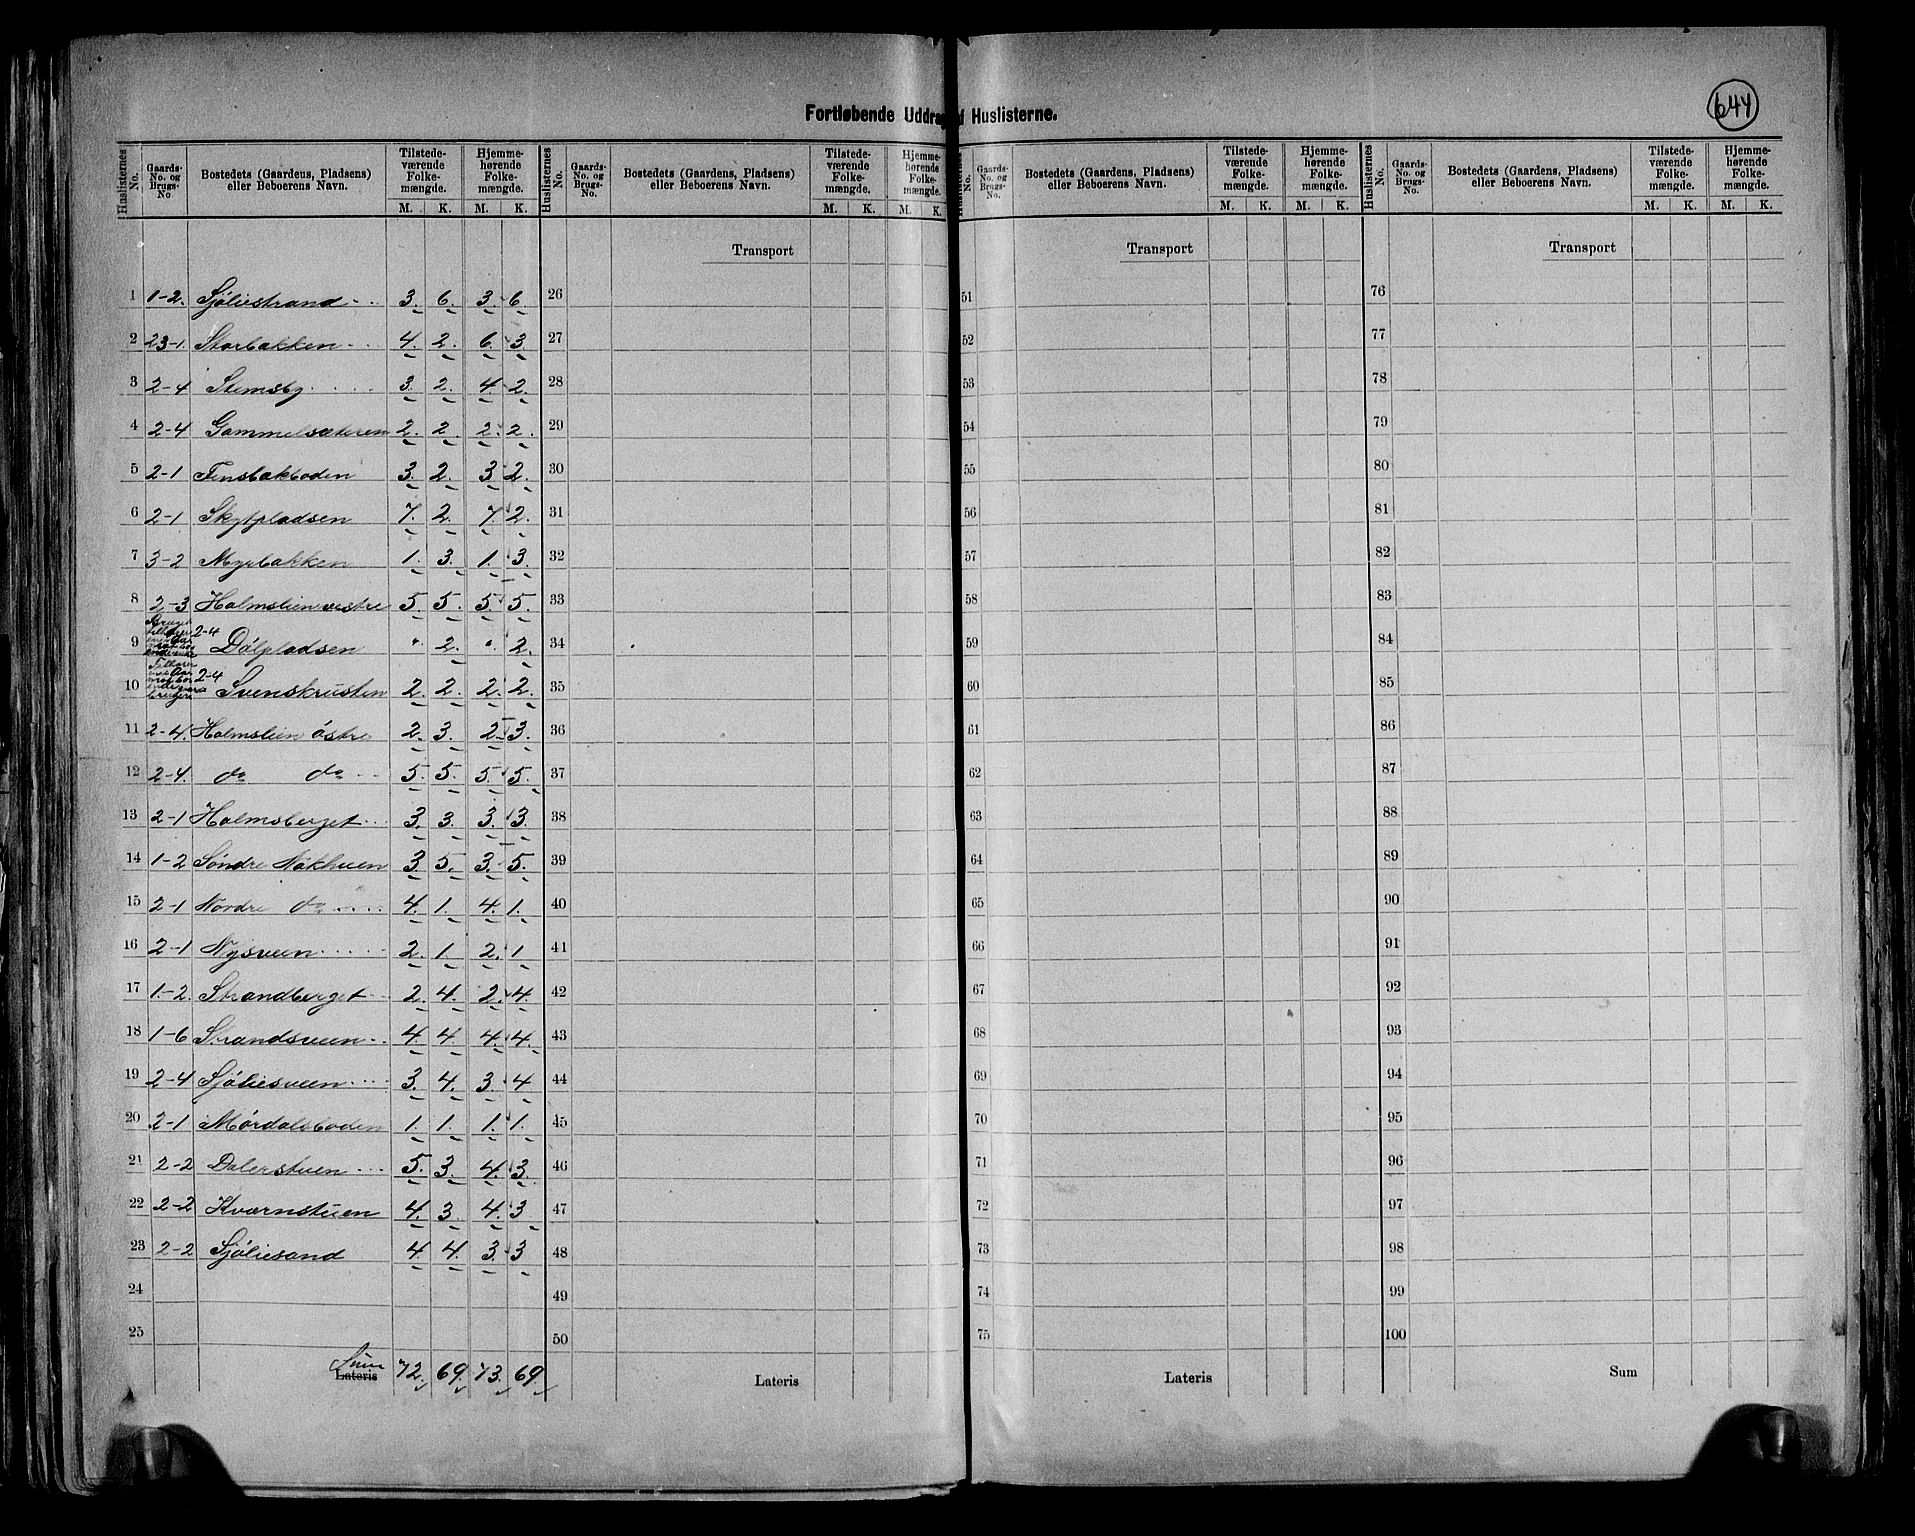 644
Fortløbende Uddrag af Huslisterne.
Huslisternes No. Gaards-No. og Brugs-No. Bostedets (Gaardens, Pladsens) eller Beboerens Navn. Tilstedeværende Folkemængde. M. K. Hjemmehørende Folkemængde. M. K.
Huslisternes No. Gaards-No. og Brugs-No. Bostedets (Gaardens, Pladsens) eller Beboerens Navn. Tilstedeværende Folkemængde. M. K. Hjemmehørende Folkemængde. M. K.
Huslisternes No. Gaards-No. og Brugs-No. Bostedets (Gaardens, Pladsens) eller Beboerens Navn. Tilstedeværende Folkemængde. M. K. Hjemmehørende Folkemængde. M. K.
Huslisternes No. Gaards-No. og Brugs-No. Bostedets (Gaardens, Pladsens) eller Beboerens Navn. Tilstedeværende Folkemængde. M. K. Hjemmehørende Folkemængde. M. K.
Transport Transport Transport
1 1-2. Sjøliestrand 3. 6. 3. 6. 26 51 76
2 23-1. Storbakken 4. 2. 6. 3. 27 52 77
3 2-4 Stemsby 3. 2. 4. 2. 28 53 78
4 2-4 Gammelsæteren 2. 2. 2. 2. 29 54 79
5 2-1 Finstakboden 3. 2. 3. 2. 30 55 80
6 2-1 Skytpladsen 7. 2. 7. 2. 31 56 81
7 3-2 Myrbakken 1. 3. 1. 3. 32 57 82
8 2-3 Holmslien vestre 5. 5. 5. 5. 33 58 83
9 2-4 Dølpladsen " 2. " 2. 34 59 84
10 2-4 Svenskrusten 2. 2. 2. 2. 35 60 85
11 2-4. Holmslien østre 2. 3. 2. 3. 36 61 86
12 2-4. do do 5. 5. 5. 5. 37 62 87
13 2-1 Holmsberget 3. 3. 3. 3. 38 63 88
14 1-2 Søndre Nøkhuen 3. 5. 3. 5. 39 64 89
15 2-1 Nordre do 4. 1. 4. 1. 40 65 90
16 2-1 Nysveen 2. 1. 2. 1 41 66 91
17 1-2. Strandberget 2. 4. 2. 4. 42 67 92
18 1-6 Strandsveen 4. 4. 4. 4. 43 68 93
19 2-4 Sjøliesveen 3. 4. 3. 4 44 69 94
20 2-1 Mørdalsboden 1. 1. 1. 1. 45 70 95
21 2-2 Dalerstuen 5. 3. 4. 3. 46 71 96
22 2-2 Kværnstuen 4. 3. 4. 3 47 72 97
23 2-2 Sjøliesand 4. 4. 3. 3 48 73 98
24 49 74 99
25 50 75 100
Sum
Lateris 72. 69. 73. 69. Lateris Lateris Sum